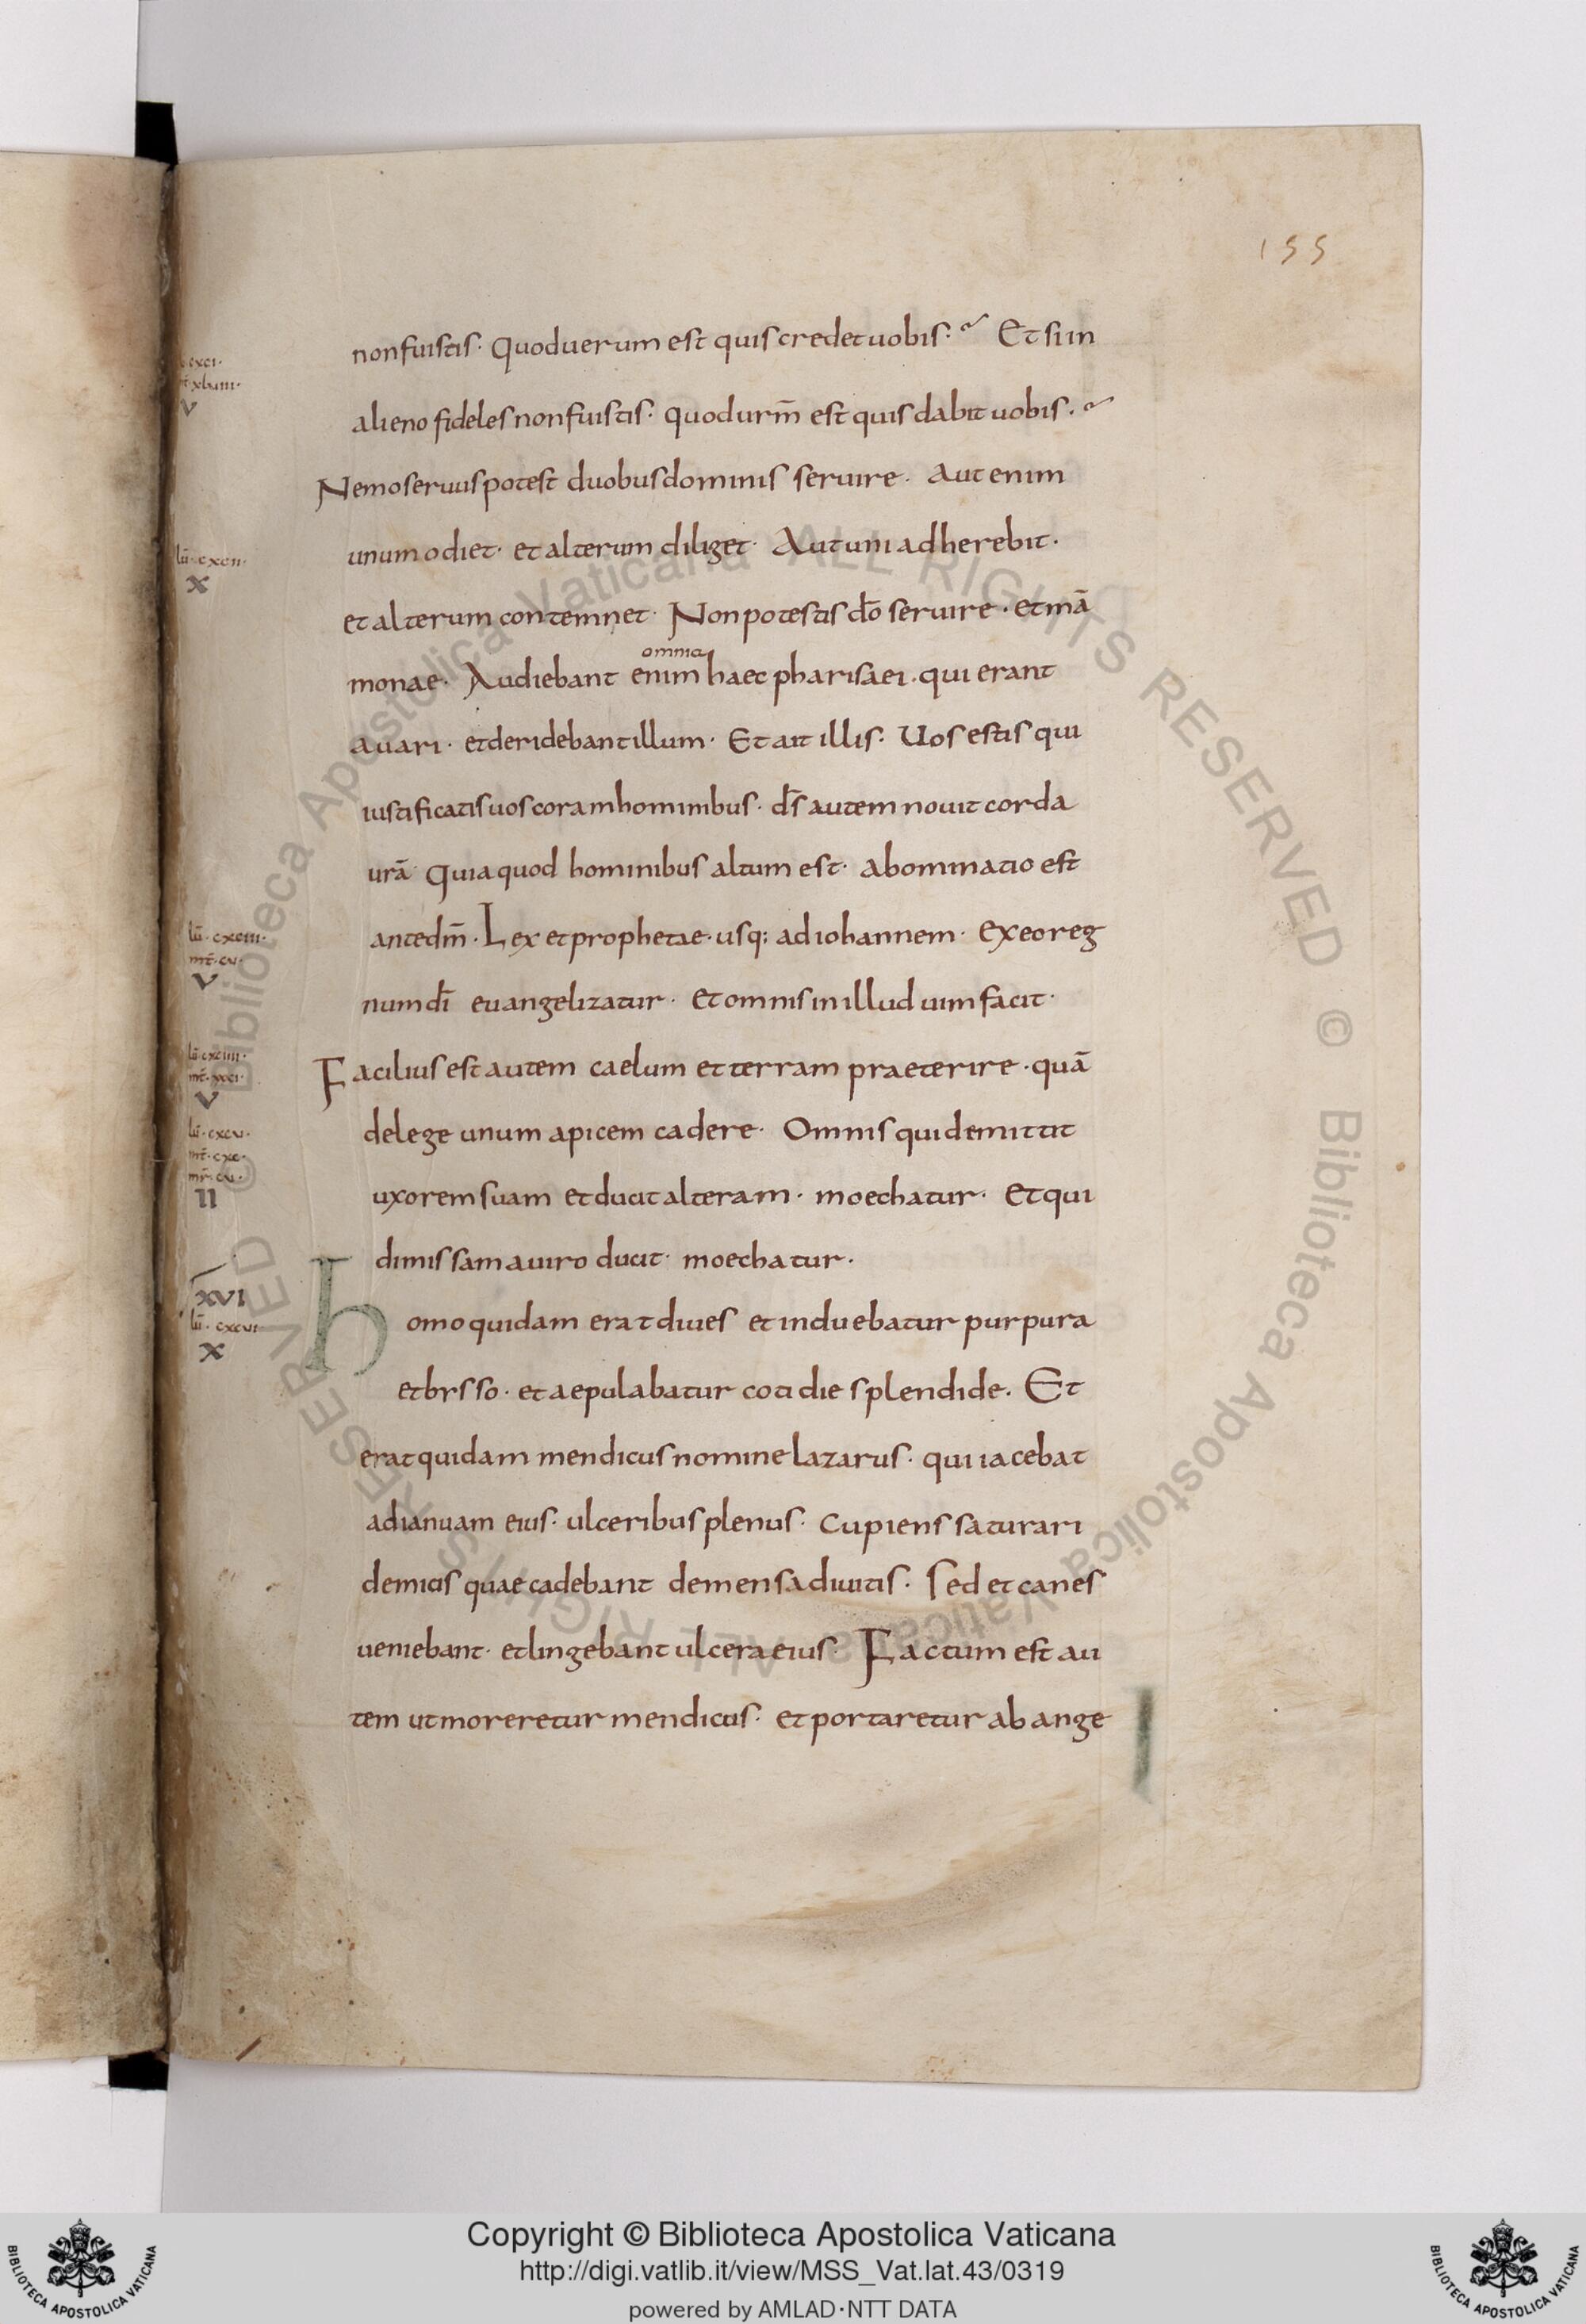 155
non fuistis· Quod uerum est quis credet uobis·? Et si in
alieno fideles non fuistis· quod urm̄ est quis dabit uobis·?
Nemo seruus potest duobus dominis seruire· aut enim
unum odiet· et alterum diliget· Aut uni adherebit·
et alterum contemnet· Non potestis dō seruire· et mā
omnia
monae· Audiebant enim haec pharisaei· qui erant
auari· et deridebant illum· Et ait illis· Uos estis qui
iustificatis uos coram hominibus· d̄s autem nouit corda
urā Quia quod hominibus altum est· abominatio est
ante dm̄· Lex et prophetae· usq; ad iohannem· Ex eo reg
num dī euangelizatur· Et omnis in illud uim facit·
Facilius est autem caelum et terram praeterire· quā
de lege unum apicem cadere· Omnis qui demittit
uxorem suam et ducit alteram· moechatur· Et qui
dimissam a uiro ducit· moechatur·
homo quidam erat diues et induebatur purpura
et brsso· et aepulabatur cotidie splendide. Et
erat quidam mendicus nomine lazarus· qui iacebat
ad ianuam eius· ulceribus plenus· Cupiens saturari
de micis quae cadebant de mensa diuitis· Sed et canes
ueniebant· et lingebant ulcera eius· Factum est au
tem ut moreretur mendicus· et portaretur ab ange
V
lū· cxcii·
X
lū· cxciii·
mt̄· cu·
V
lū· cxciiii·
V
lū· cxcu·
mt̄· cxc·
mr̄· cu·
II
XVI
lū· cxcui·
X
Copyright © Biblioteca Apostolica Vaticana
http://digi.vatlib.it/view/MSS_Vat.lat.43/0319
powered by AMLAD·NTT DATA
BIBLIOTECA APOSTOLICA VATICANA
BIBLIOTECA APOSTOLICA VATICANA
© Biblioteca Apostolica Vaticana ALL RIGHTS RESERVED © Biblioteca Apostolica Vaticana ALL RIGHTS RESERVED